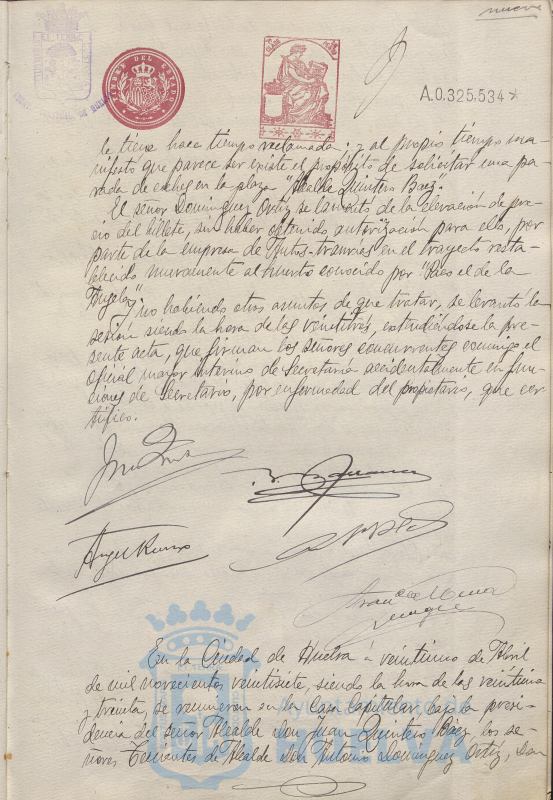 nueve
TIMBRE DEL ESTADO
CLASE
A.0.325.534
le tiene hace tiempo reclamada; y al propio tiempo ma-
nifesto que parece ser existe el propósito de solicitar una pa-
rada de coches en la plaza "Alcalde Quintero Baez".
El señor Dominguez Ortiz se lamentó de la elevación de pre-
cio del billete, sin haber obtenido autorización para ello, por
parte de la empresa de Autos-tranvias en el trayecto resta-
blecido nuevamente al huerto conocido por "Paco el de la
Angela"; y no habiendo otros asuntos de que tratar, se levantó la
sesión siendo la hora de las veintitrés, extendiéndose la pre-
sente acta, que firman los señores concurrentes conmigo el
Oficial mayor interino de Secretaria accidentalmente en fun-
ciones de Secretario, por enfermedad del propietario, que cer-
tifico.
En la Ciudad de Huelva á veintiuno de Abril
de mil novecientos veintisiete, siendo la hora de las veintiuna
y treinta, se reunieron en la Casa Capitular, bajo la presi-
dencia del señor Alcalde Don Juan Quintero Báez, los se-
ñores Tenientes de Alcalde Don Antonio Dominguez Ortiz, Don
HUELVA